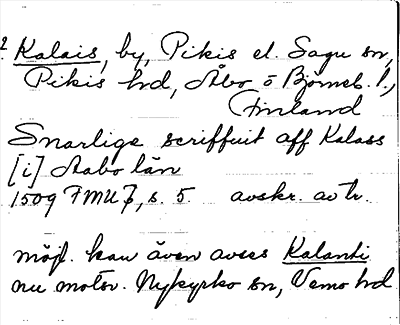 2. Kalais, by, Pikis el. Sagu sn,
Pikis hrd, Åbo o Björneb. l.,
Finland
Snarlige scriffuit aff Kalass
[i] Aabo län
1509 FMU 7, s. 5 avskr. av tr.
möjl. kan även avses Kalanti
nu motsv. Nykyrko sn, Vemo hrd